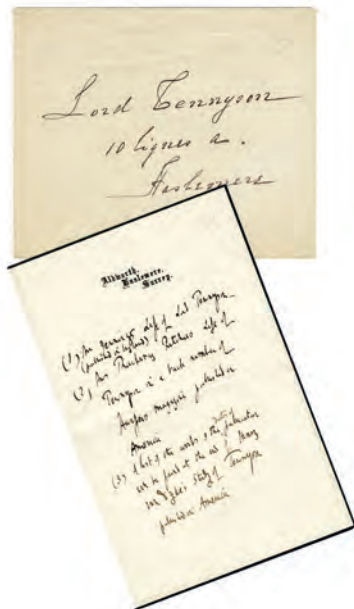 Lord Tennyson
10 lignes a.
Haslemere
Aldworth,
Haslemere,
Surrey.
(1) Mr Jennings' Life of Lord Tennyson
(published in England)
(2) Mrs Ritchie's Life of
Tennyson in a back number of
Harpers magazine published in
America
(3) A list of the works & their publication
will be found at the end
Dyke's Study of Tennyson
published in America